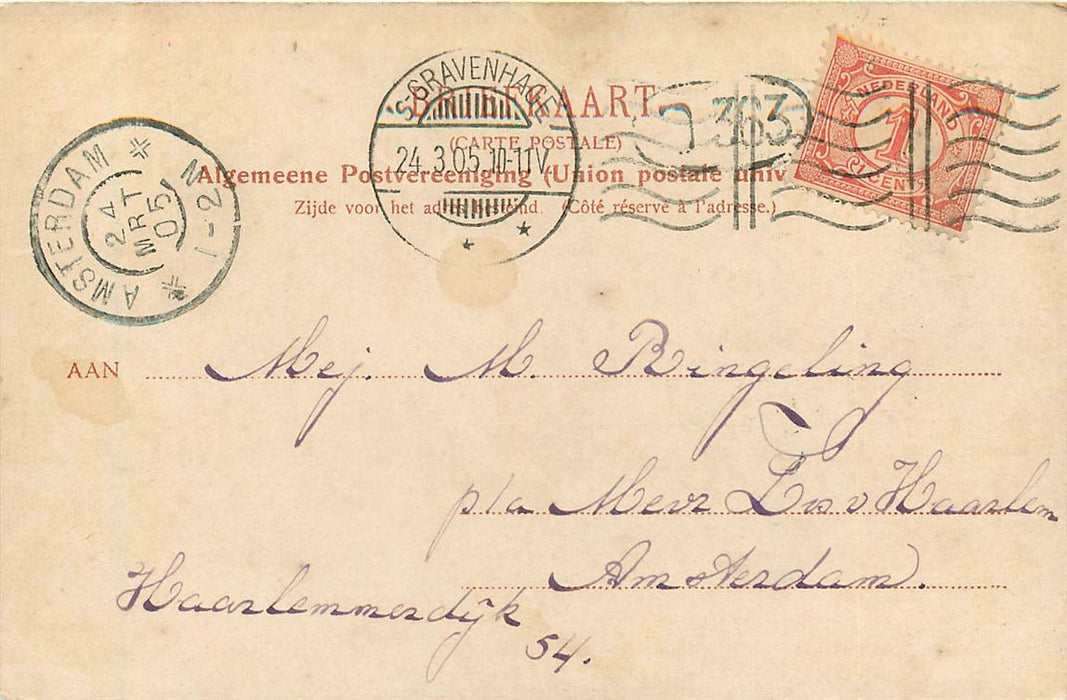 'S-GRAVENHAGE
24.3.05.10-11V
AMSTERDAM
24
MRT
05
1-2 N
363
NEDERLAND
1
CENT
BRIEFKAART
(CARTE POSTALE)
Algemeene Postvereeniging (Union postale univ
Zijde voor het adres bestemd. (Côté réservé à l'adresse.)
AAN Mej. M. Ringeling
p/a Mevr v Haarlem
Amsterdam.
Haarlemmerdijk
54.